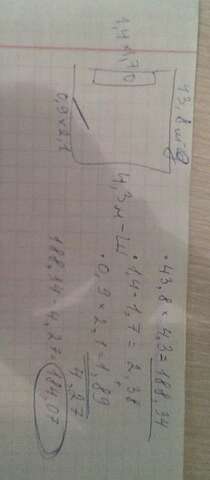 43,8
1,4×1,70
0,9×2,1
4,3м-Ш
• 43,8 × 4,3 = 188,34
• 1,4 · 1,7 = 2,38
• 0,9 × 2,1 = 1,89
4,27
188,34 - 4,27 = 184,07